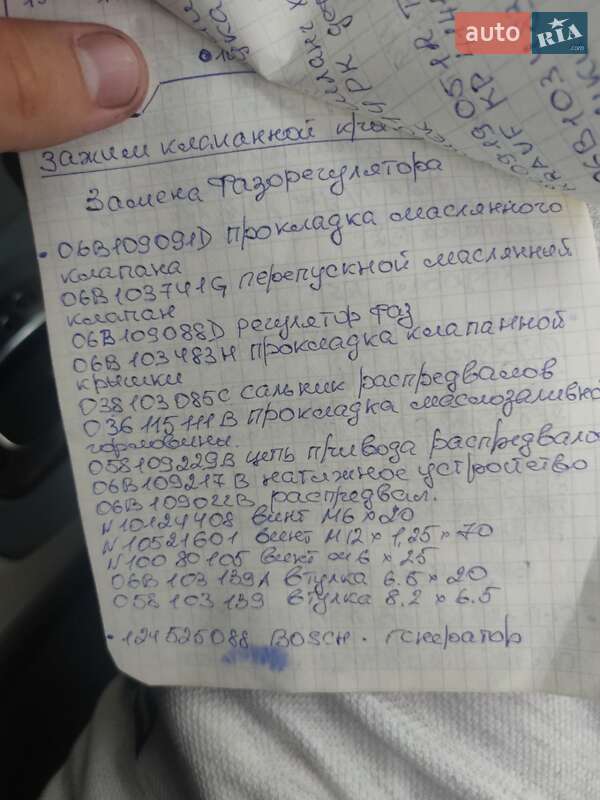 auto RIA .com
Зажим клапанной
Замена Фазорегулятора
• 06B109091D прокладка маслянного
клапана
06B103741G перепускной маслянный
клапан
06B109088D регулятор фаз
06B103483H прокладка клапанной
крышки
038103085C сальник распредвалов
036115111B прокладка маслозаливной
горловины.
058109229B цепь привода распредвалов
06B109217B натяжное устройство
06B109022B распредвал.
N10124408 винт М6 × 20
N10521601 винт М12 × 1,25 × 70
N10080105 винт м6 × 25
06B103139A втулка 6.5 × 20
058103139 втулка 8.2 × 6.5
• 124525088 BOSCH. генератор